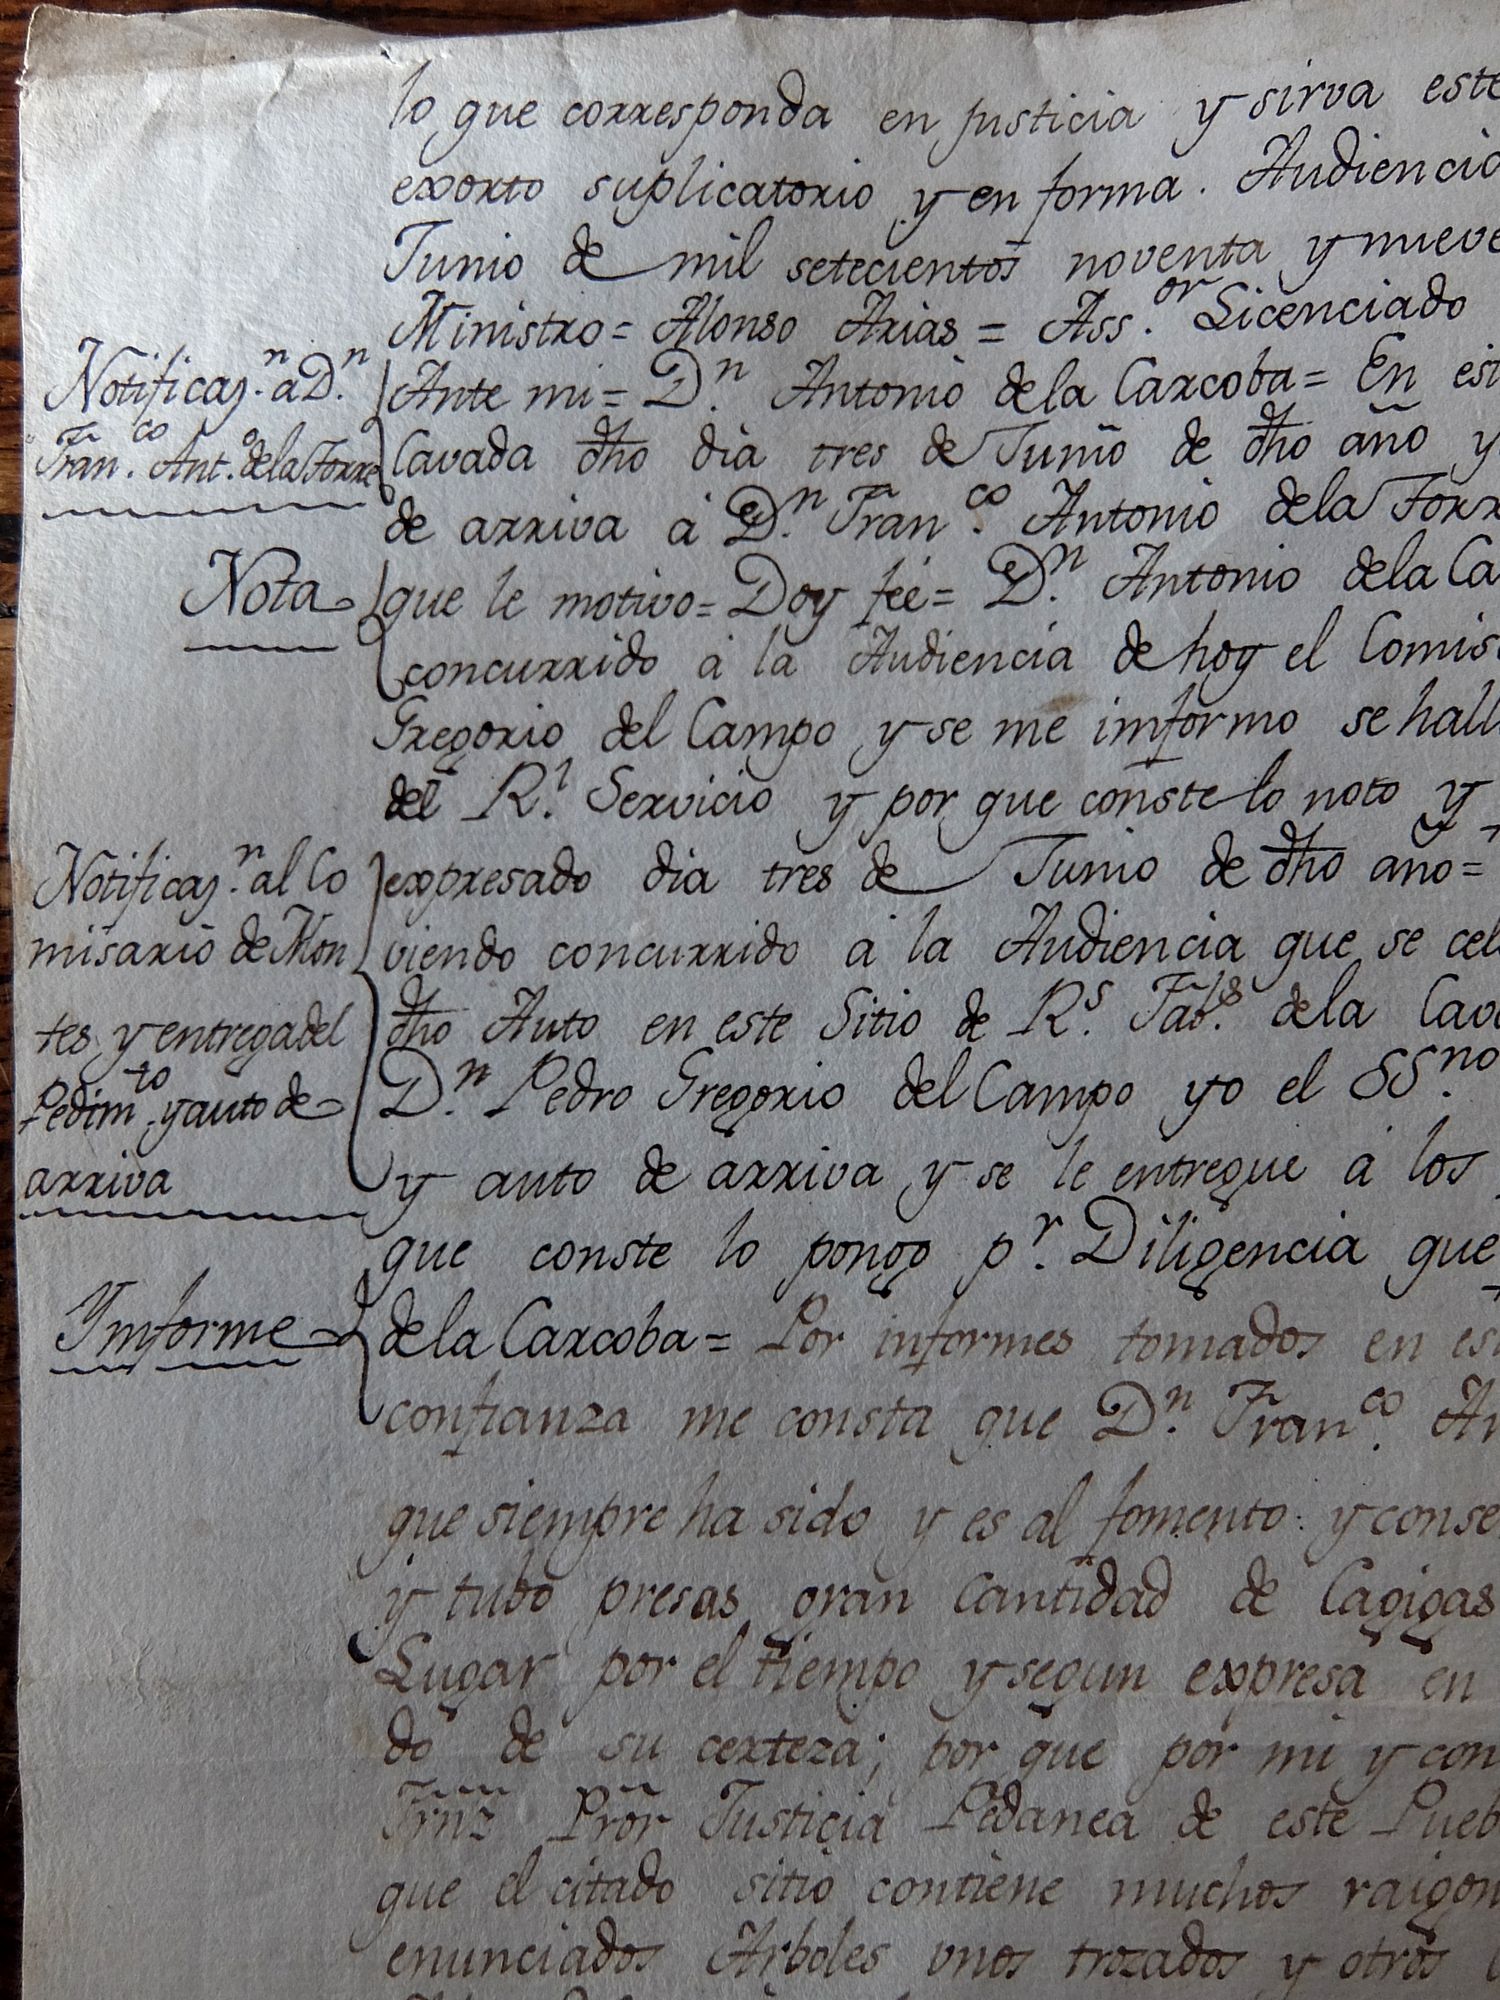 lo que corresponda en justicia y sirva este
exorto suplicatorio y en forma. Audiencia
Junio de mil setecientos noventa y nueve
Ministro = Alonso Arias = Ass.or Licenciado
Notificaz.n a D.n
Fran.co Ant.o dela Torre
Ante mi = D.n Antonio dela Carcoba = En est
Cavada dho dia tres de Junio de dho año y
de arriva á D.n Fran.co Antonio dela Torr
Nota
que le motivo = Doy feé = D.n Antonio dela Ca
concurrido á la Audiencia de hoy el Comis
Gregorio del Campo y se me imformo se hall
del R.l Servicio y por que conste lo noto y
Notificaz.n al Co
misario de Mon
tes y entrega del
Pedim.to y auto de
arriva
expresado dia tres de Junio de dho año =
viendo concurrido á la Audiencia que se cel
dho Auto en este Sitio de R.s Fab.s dela Cav
D.n Pedro Gregorio del Campo yo el SS.no
y auto de arriva y se le entregue á los
que conste lo pongo p.r Diligencia que
Ymforme
dela Carcoba = Por informes tomados en es
confianza me consta que D.n Fran.co An
que siempre ha sido y es al fomento y conse
y tubo presas gran cantidad de Cagigas
Lugar por el tiempo y segun expresa en
do de su certeza; por que por mi y con
Prõr Justicia Pedanea de este Pueb
que el citado sitio contiene muchos raigon
enunciados Arboles unos trozados y otros